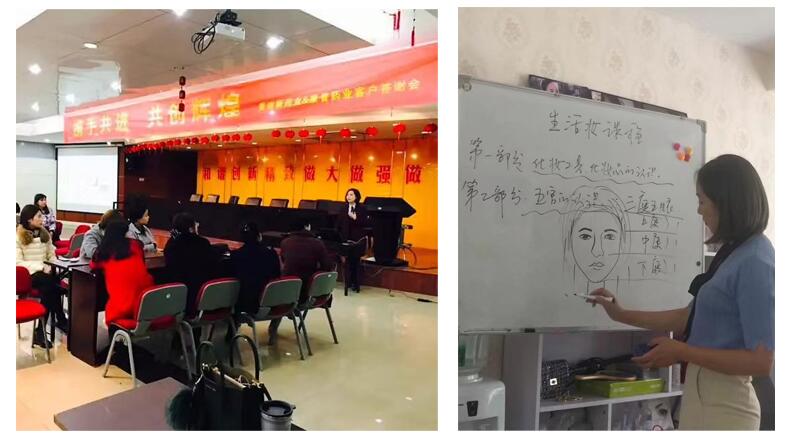 携手共进 共创辉煌
客户答谢会
和谐创新精致做大做强做
生活妆课程
第一部分 化妆工具 化妆品的认识
第二部分 五官的认识 三庭五眼
上庭
中庭
下庭